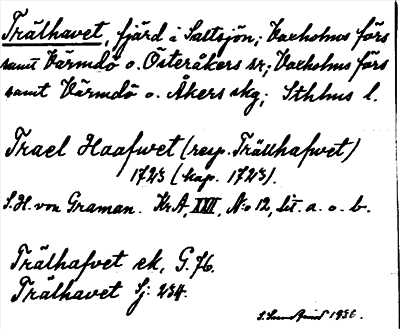 Trälhavet, fjärd i Saltsjön; Vaxholms förs
samt Värmdö o. Österåkers sr; Vaxholms förs
samt Värmdö o. Åkers skg; Sthlms l.
Trael Haafwet (resp. Trällhafwet)
1723 (kop. 1723).
S.H. von Graman. Kr.A, XVII, No 12, lit. a. o. b.
Trälhafvet ek. G. 76.
Trälhavet Sj. 234.
1936.